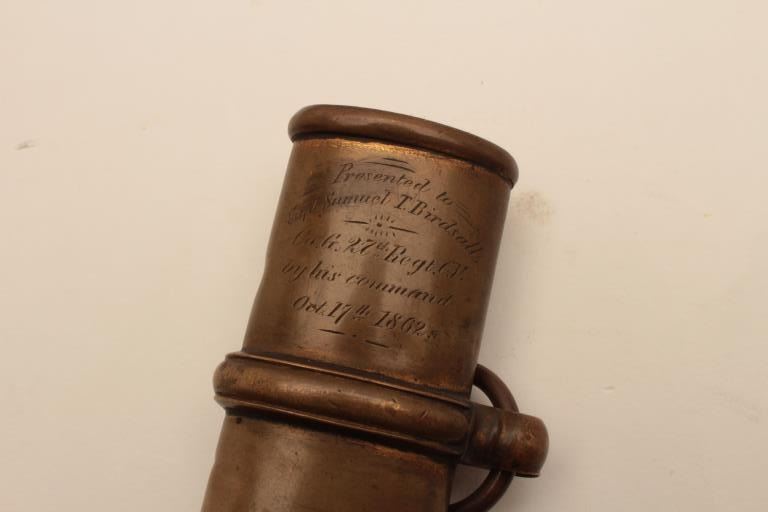 Presented to
Capt. Samuel T. Birdsall,
Co. G. 27th Regt. C.V.
by his command
Oct. 17th 1862.